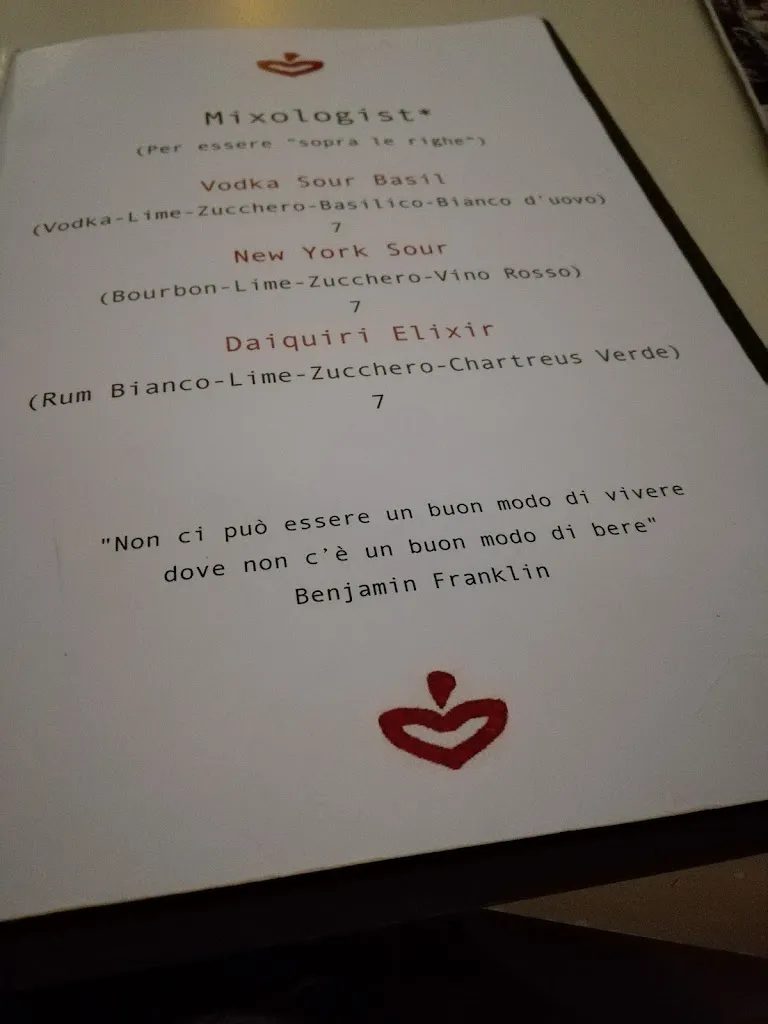 Mixologist*
(Per essere "sopra le righe")
Vodka Sour Basil
(Vodka-Lime-Zucchero-Basilico-Bianco d'uovo)
7
New York Sour
(Bourbon-Lime-Zucchero-Vino Rosso)
7
Daiquiri Elixir
(Rum Bianco-Lime-Zucchero-Chartreus Verde)
7
"Non ci può essere un buon modo di vivere
dove non c'è un buon modo di bere"
Benjamin Franklin